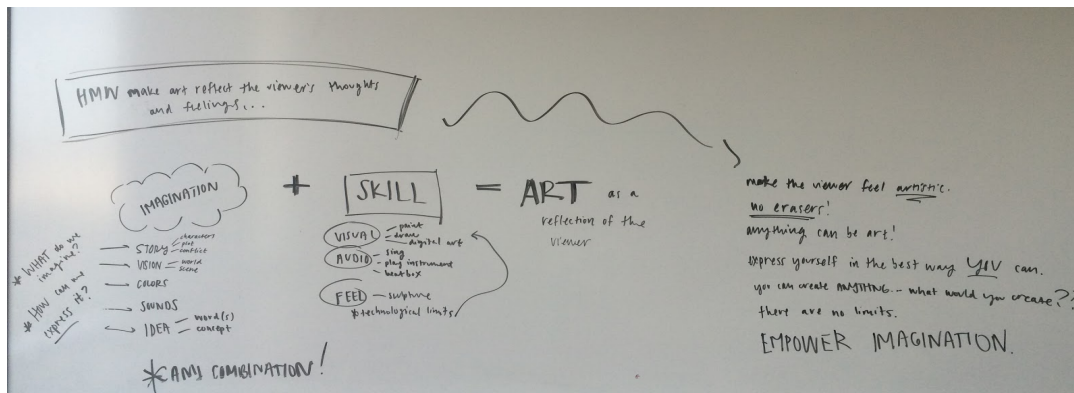 HMW make art reflect the viewer's thoughts
and feelings...
IMAGINATION
+
SKILL
=
ART as a
reflection of the
viewer
* WHAT do we
imagine?
* HOW can we
express it?
STORY
characters
plot
conflict
VISION
world
scene
COLORS
SOUNDS
IDEA
word(s)
concept
*ANY COMBINATION!
VISUAL
paint
draw
digital art
AUDIO
sing
play instrument
beatbox
FEEL
sculpture
*technological limits
make the viewer feel artistic.
no erasers!
anything can be art!
express yourself in the best way YOU can.
you can create ANYTHING... what would you create??
there are no limits.
EMPOWER IMAGINATION.